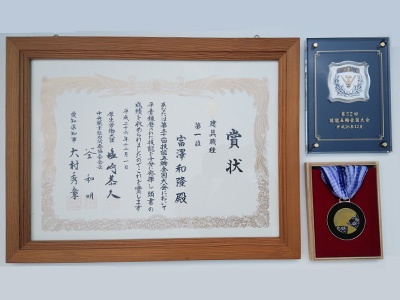 賞状
建具職種
第一位
富澤和隆殿
あなたは第五十二回技能五輪全国大会において
平素錬磨された技能を十分に発揮し頭書の
成績を収められましたのでこれを賞します
平成二十六年十二月一日
厚生労働大臣 塩崎恭久
中央職業能力開発協会会長
釡和明
愛知県知事 大村秀章
第52回
技能五輪全国大会